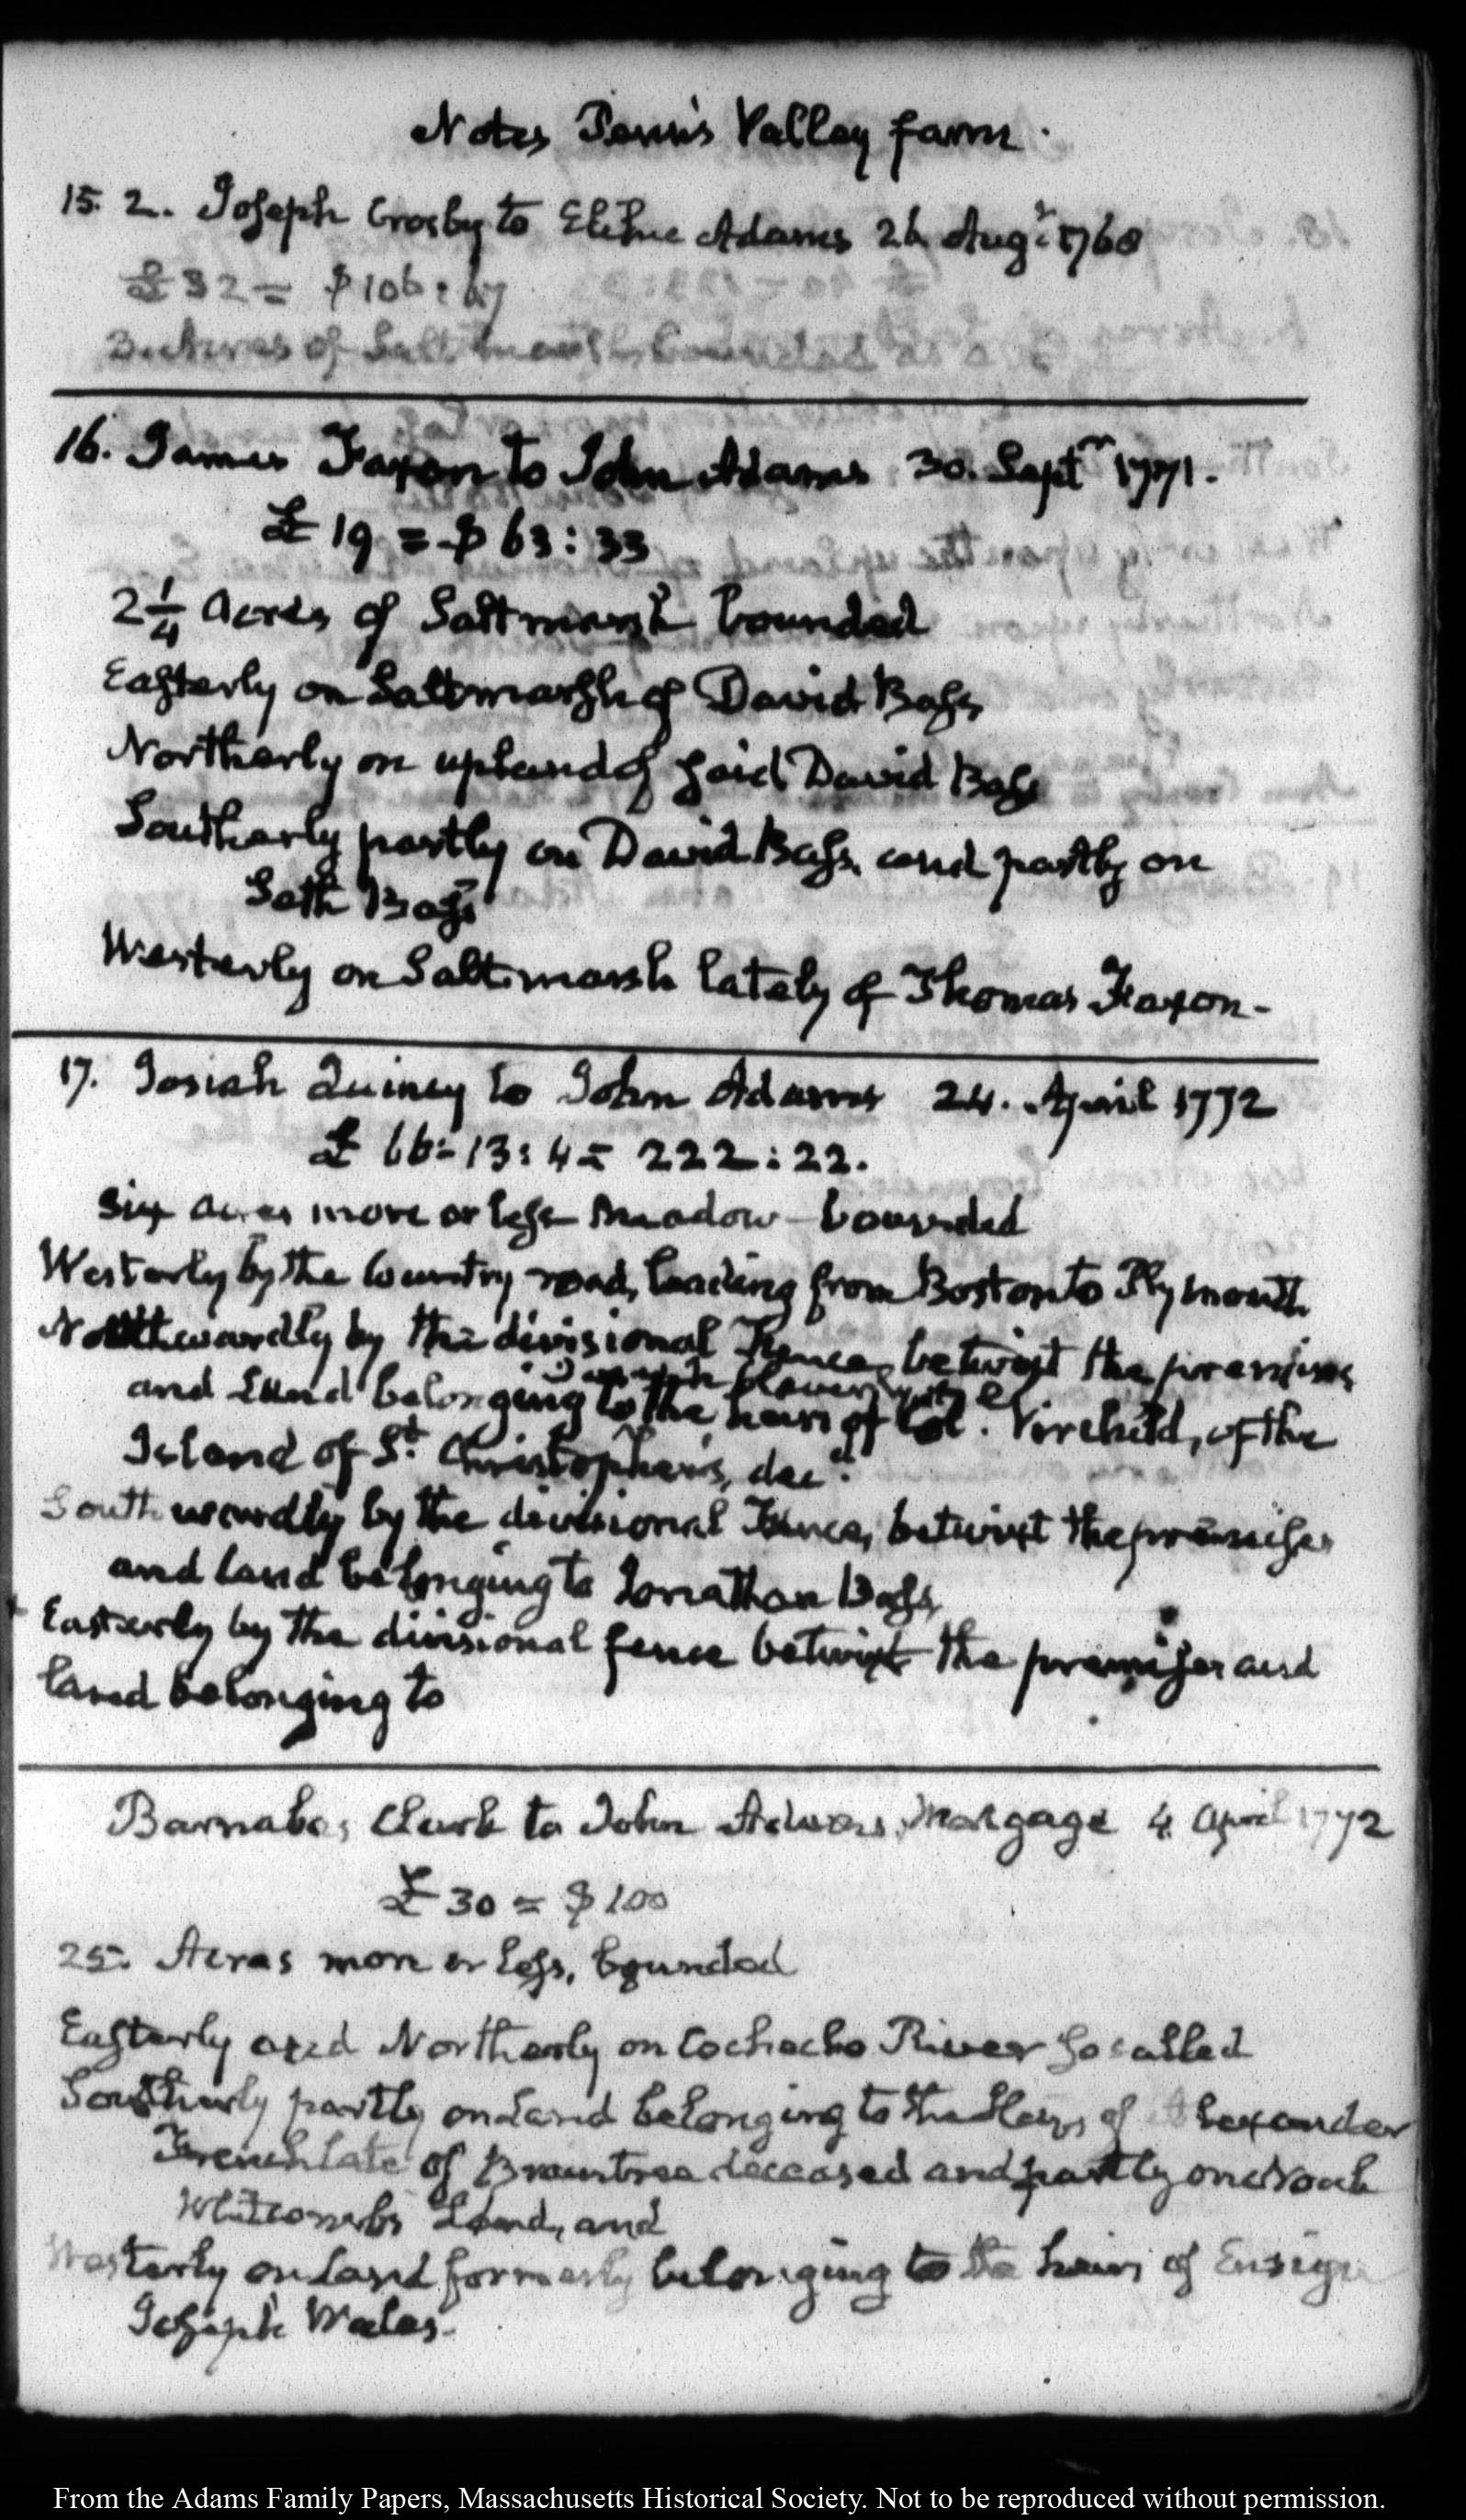 Notes Penn's Valley farm.
15. 2. Joseph Crosby to Elihue Adams 26 Augt 1760
£ 32 = $ 106 : 67
Acres of Salt marsh bounded as
16. James Faxon to John Adams 30. Septr 1771.
£ 19 = $ 63 : 33
2 1/4 Acres of Saltmarsh bounded
Easterly on Saltmarsh of David Bass
Northerly on upland of said David Bass
Southerly partly on David Bass, and partly on
Seth Bass
Westerly on Saltmarsh lately of Thomas Faxon -
17. Josiah Quincy to John Adams 24. April 1772
£ 66 : 13 : 4 = 222 : 22.
Six acres more or less Meadow bounded
Westerly by the Country road, leading from Boston to Plymouth
Northwardly by the divisional Fence, betwixt the premises
and Land belonging to the heirs of Col. Virchild, of the
Island of St. Christopher's, decd.
Southwardly by the divisional Fence, betwixt the premises
and land belonging to Jonathan Bass,
Easterly by the divisional fence betwixt the premises and
land belonging to
Barnabas Clark to John Adams, Mortgage 4 April 1772
£ 30 = $ 100
25. Acres more or less, bounded
Easterly and Northerly on Cochecho River so called
Southerly partly on Land belonging to the Heirs of Alexander
French late of Braintree deceased and partly on Noah
Whitcomb's Land, and
Westerly on Land formerly belonging to the heirs of Ensign
Joseph Wales.
From the Adams Family Papers, Massachusetts Historical Society. Not to be reproduced without permission.